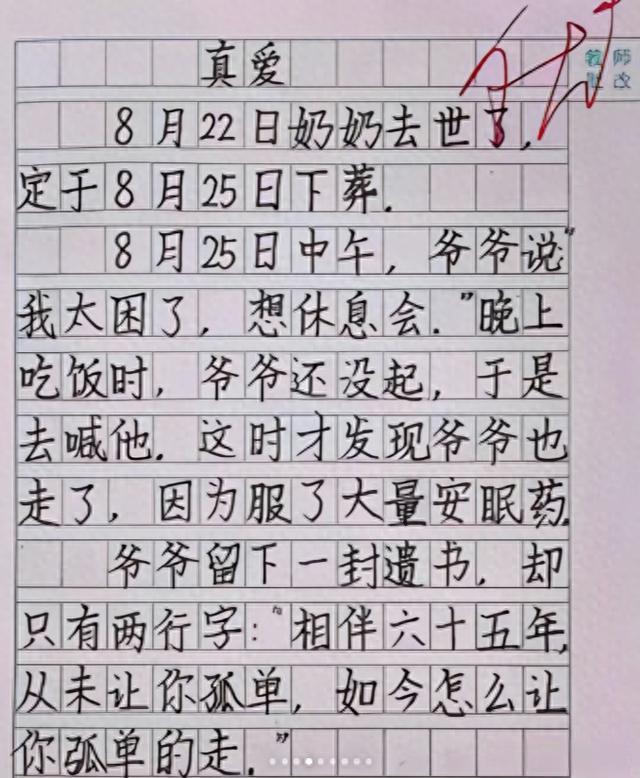 真爱
教师
批改
8月22日奶奶去世了,
定于8月25日下葬.
8月25日中午,爷爷说“
我太困了,想休息会.”晚上
吃饭时,爷爷还没起,于是
去喊他.这时才发现爷爷也
走了,因为服了大量安眠药.
爷爷留下一封遗书,却
只有两行字:“相伴六十五年,
从未让你孤单,如今怎么让
你孤单的走.”